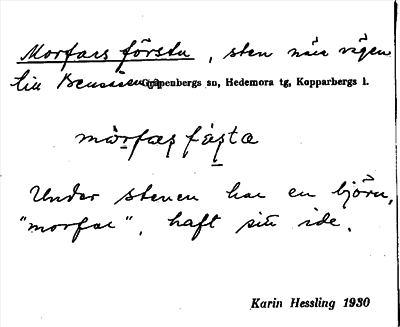 Morfars första, sten nära vägen
till
Garpenbergs sn, Hedemora tg, Kopparbergs l.
mòrfas fàsta
Under stenen har en björn,
"morfar", haft sitt ide.
Karin Hessling 1930